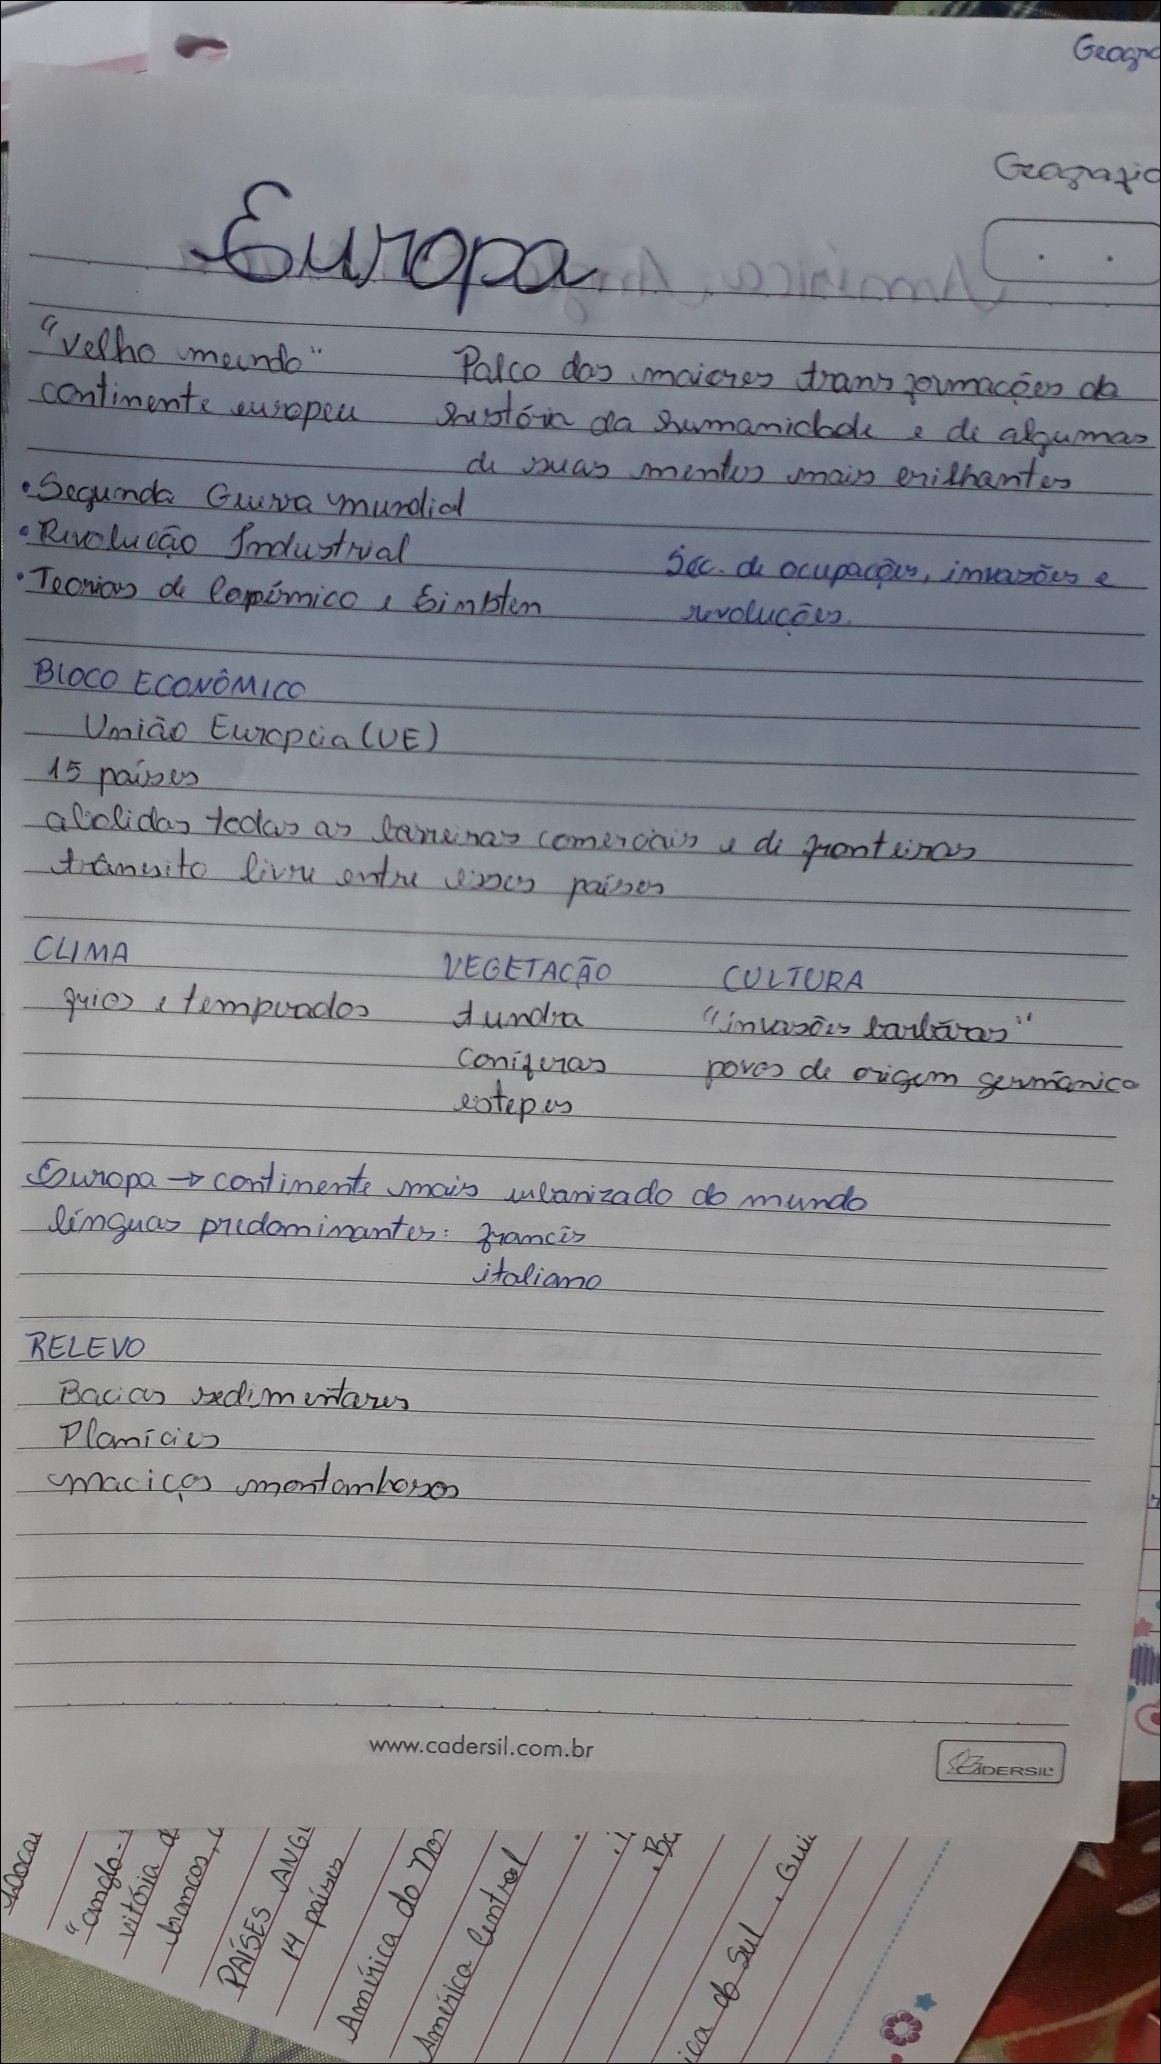 Geogra
Geografia
Europa
"Velho mundo"
continente europeu
Palco das maiores transformações da
história da humanidade e de algumas
de suas mentes mais brilhantes
• Segunda Guerra mundial
• Revolução Industrial
• Teorias de Copérnico e Einsten
Séc. de ocupações, invasões e
revoluções.
BLOCO ECONÔMICO
União Européia (UE)
15 países
abolidas todas as barreiras comerciais e de fronteiras
trânsito livre entre esses países
CLIMA
frios e temperados
VEGETAÇÃO
tundra
coníferas
estepes
CULTURA
"invasões barbáras"
povos de origem germânica
Europa → continente mais urbanizado do mundo
línguas predominantes: francês
italiano
RELEVO
Bacias sedimentares
Planícies
maciços montanhosos
www.cadersil.com.br
CADERSIL
"anglo-
vitória d
brancos,
PAÍSES ANGL
14 países
América do Nor
América Central
, Ba
ica do Sul , Gui